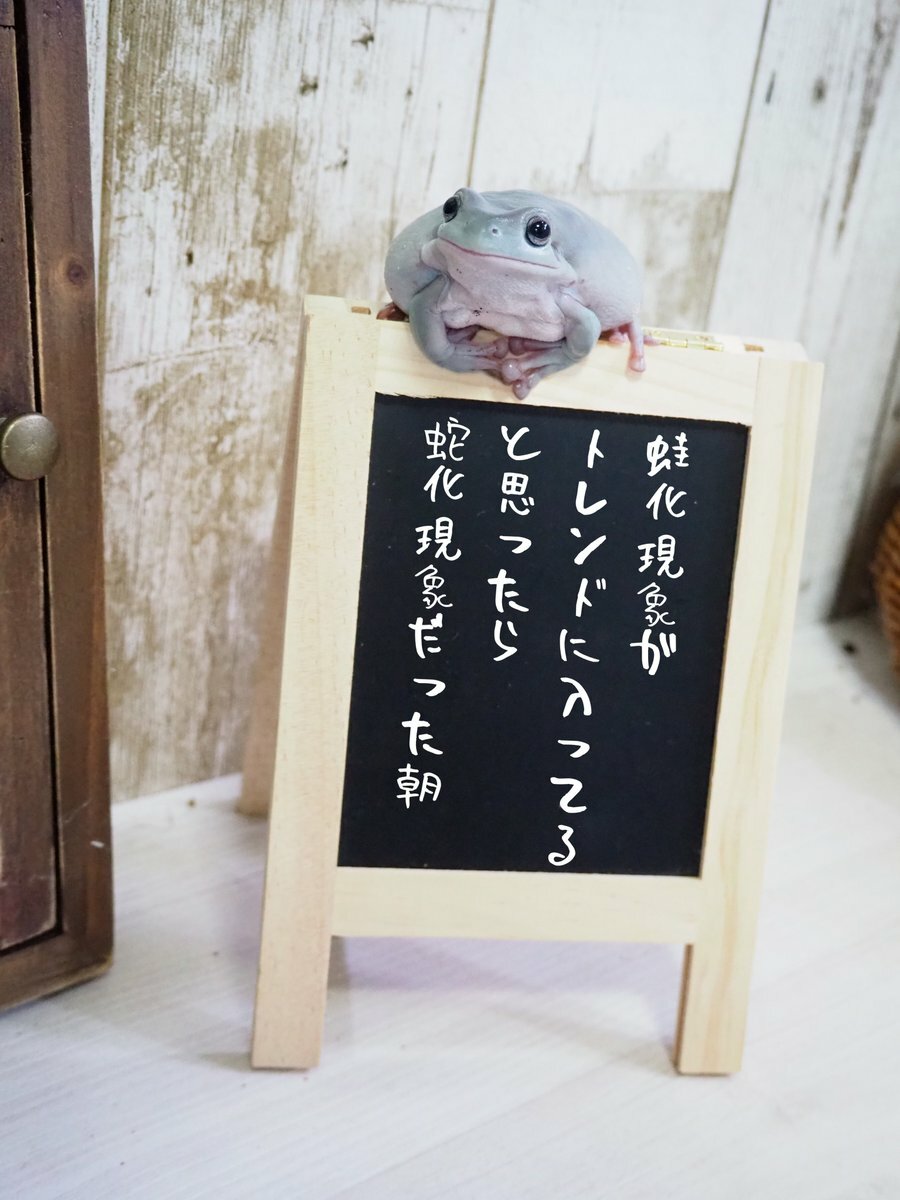 蛙化現象が
トレンドに入ってる
と思ったら
蛇化現象だった朝